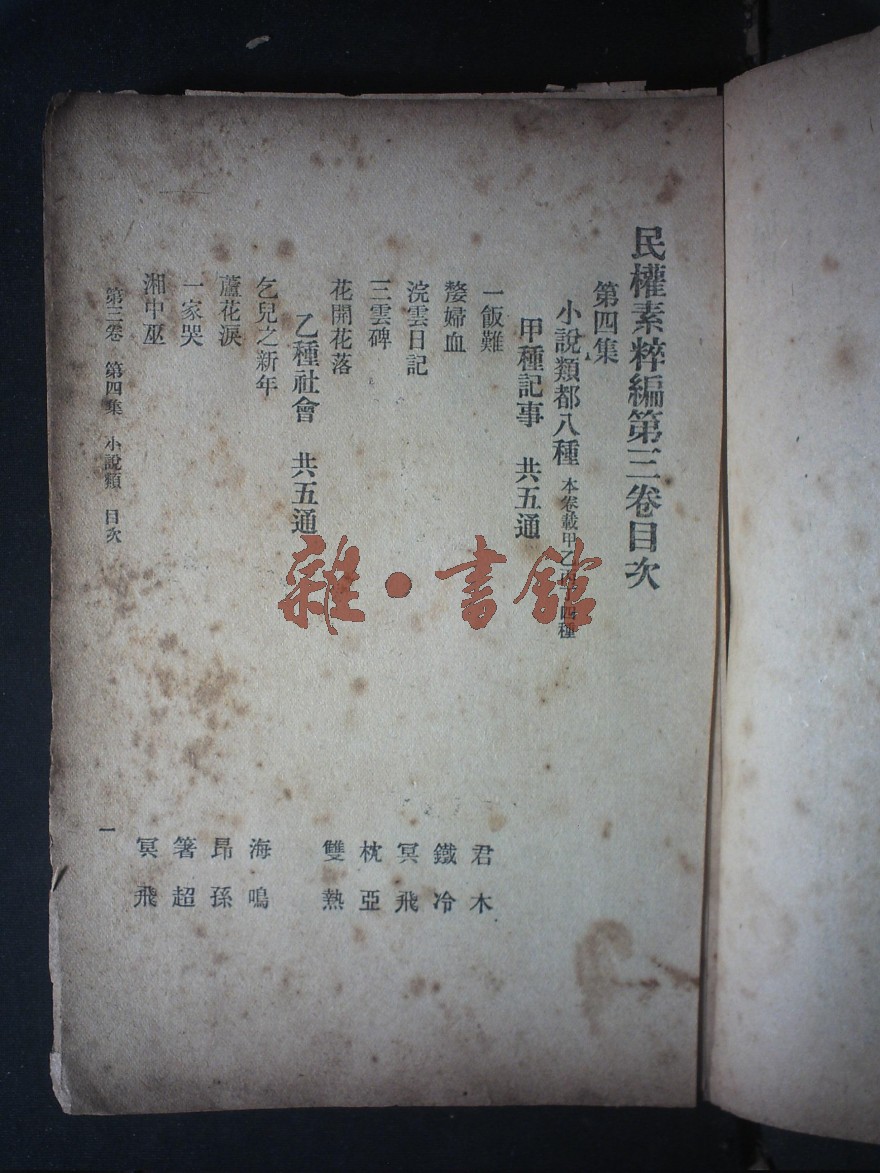 民權素粹編第三卷目次
第四集
小說類都八種 本卷載甲乙丙丁四種
甲種記事 共五通
一飯難 君木
嫠婦血 鐵冷
浣雲日記 冥飛
三雲碑 枕亞
花開花落 雙熱
乙種社會 共五通
乞兒之新年 海鳴
蘆花淚 昂孫
一家哭 箸超
湘中巫 冥飛
第三卷 第四集 小說類 目次
一
雜·書館